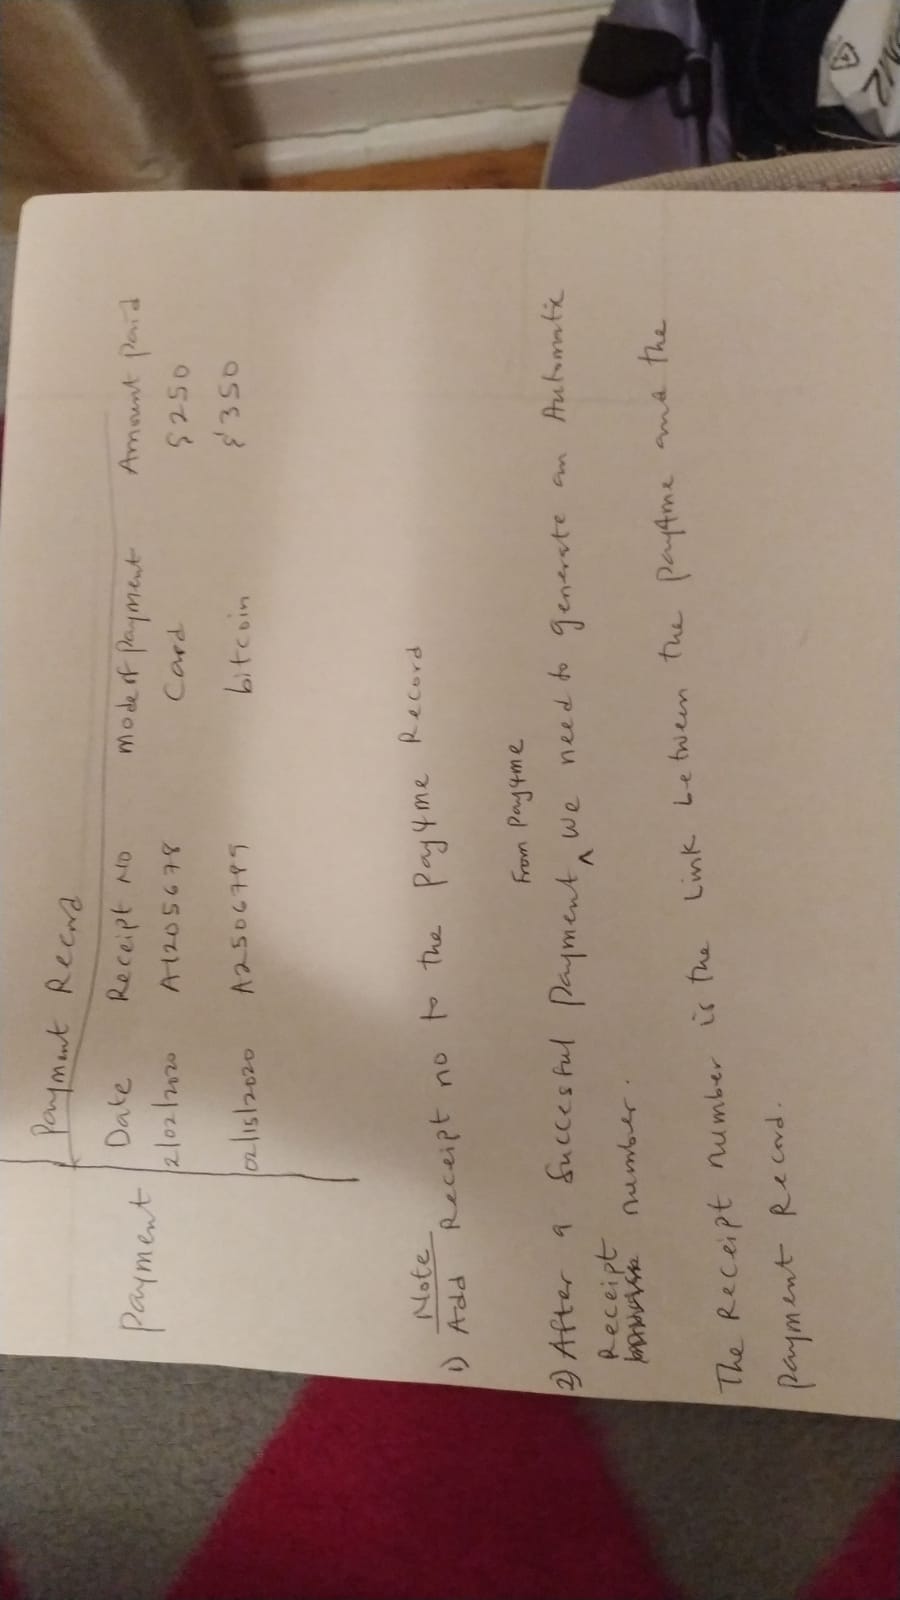 Payment Record
Payment Date Receipt No Mode of Payment Amount Paid
2/02/2020 A1205678 Card $250
02/15/2020 A2506789 bitcoin $350
Note
1) Add Receipt no to the Pay4me Record
From Pay4me
2) After a Succesful Payment ^ we need to generate an Automatic
Receipt number.
The Receipt number is the Link between the pay4me and the
Payment Record.